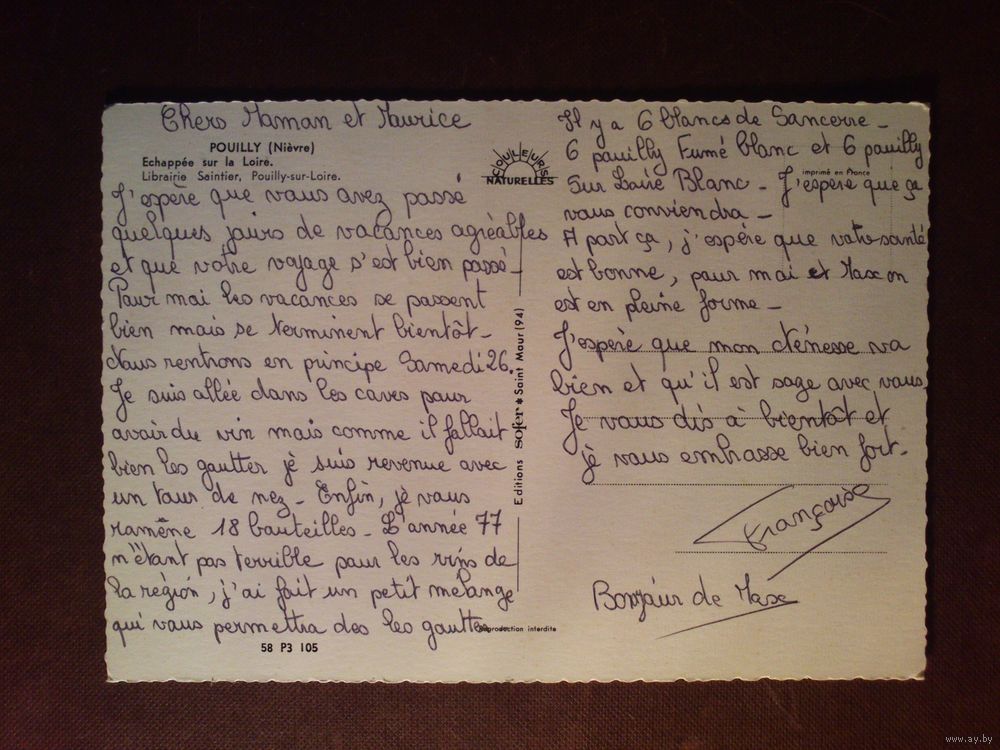 Chers Maman et Maurice
POUILLY (Nièvre)
Echappée sur la Loire.
Librairie Saintier, Pouilly-sur-Loire.
COULEURS
NATURELLES
J'espère que vous avez passé
quelques jours de vacances agréables
et que votre voyage s'est bien passé_
Pour moi les vacances se passent
bien mais se terminent bientôt_
Nous rentrons en principe Samedi 26.
Je suis allée dans les caves pour
avoir du vin mais comme il fallait
bien les goutter je suis revenue avec
un tour de nez_ Enfin, je vous
ramène 18 bouteilles_ L'année 77
n'étant pas terrible pour les vins de
la région, j'ai fait un petit mélange
qui vous permettra des les goutter
Reproduction interdite
58 P3 105
Editions sofer * Saint Maur (94)
imprimé en France
Il y a 6 blancs de Sancerre_
6 pouilly Fumé blanc et 6 pouilly
Sur Loire Blanc_ J'espère que ça
vous conviendra_
A part ça, j'espère que votre santé
est bonne, pour moi et Max on
est en pleine forme_
J'espère que mon va
bien et qu'il est sage avec vous.
Je vous dis à bientôt et
je vous embrasse bien fort_
Françoise
Bonjour de Max
www.ay.by